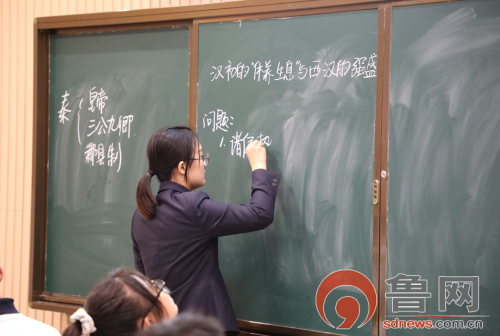 秦
皇帝
三公九卿
郡县制
汉初的"休养生息"与西汉的强盛
问题:
1. 诸侯
鲁网
sdnews.com.cn